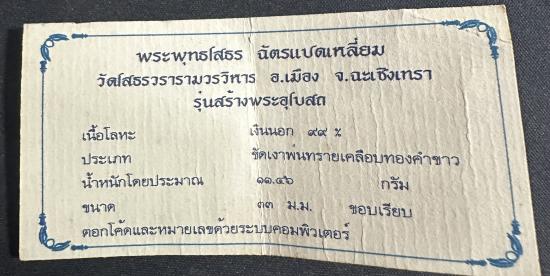 พระพุทธโสธร ฉัตรแปดเหลี่ยม
วัดโสธรวรารามวรวิหาร อ.เมือง จ.ฉะเชิงเทรา
รุ่นสร้างพระอุโบสถ
เนื้อโลหะ เงินนอก ๙๙ %
ประเภท ขัดเงาพ่นทรายเคลือบทองคำขาว
น้ำหนักโดยประมาณ ๑๑.๔๖ กรัม
ขนาด ๓๓ ม.ม. ขอบเรียบ
ตอกโค้ดและหมายเลขด้วยระบบคอมพิวเตอร์